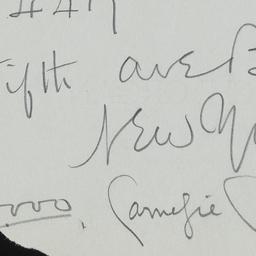 #47
Fifth ave B
New Y
000, Carnegie